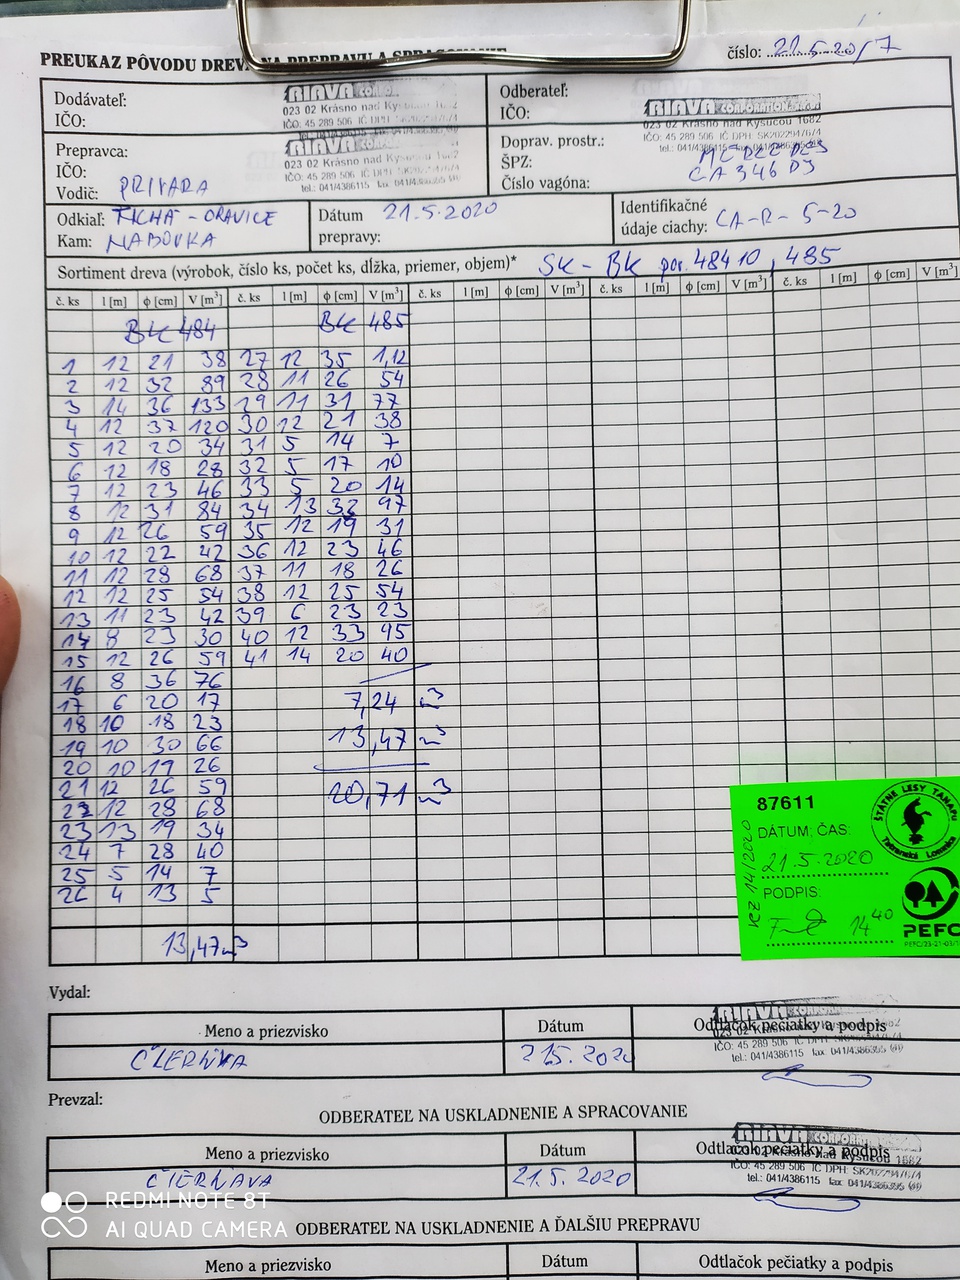 PREUKAZ PÔVODU DREVA NA PREPRAVU A SPRACOVANIE
číslo: 21.5-20/7
Dodávateľ:
IČO:
RIAVA CORPORATION
023 02 Krásno nad Kysucou 1682
IČO: 45 289 506 IČ DPH:
Odberateľ:
IČO:
RIAVA CORPORATION
023 02 Krásno nad Kysucou 1682
IČO: 45 289 506 IČ DPH: SK2022947674
tel.: 041/4386115
Prepravca:
IČO:
Vodič: PRIVARA
RIAVA CORPORATION
023 02 Krásno nad Kysucou 1682
IČO: 45 289 506 IČ DPH:
tel.: 041/4386115 fax 041/4386395
Doprav. prostr.: MERCEDES
ŠPZ: CA 346 DJ
Číslo vagóna:
Odkiaľ: TICHÁ - ORAVICE
Kam: NÁBOVKA
Dátum 21.5.2020
prepravy:
Identifikačné
údaje ciachy: CA-R-5-20
Sortiment dreva (výrobok, číslo ks, počet ks, dĺžka, priemer, objem)* SK - BK por. 484 10, 485
č. ks l [m] ϕ [cm] V [m³] č. ks l [m] ϕ [cm] V [m³] č. ks l [m] ϕ [cm] V [m³] č. ks l [m] ϕ [cm] V [m³] č. ks l [m] ϕ [cm] V [m³]
BK 484 BK 485
1 12 21 38 27 12 35 1,12
2 12 32 89 28 11 26 54
3 14 36 133 29 11 31 77
4 12 37 120 30 12 21 38
5 12 20 34 31 5 14 7
6 12 18 28 32 5 17 10
7 12 23 46 33 5 20 14
8 12 31 84 34 13 32 97
9 12 26 59 35 12 19 31
10 12 22 42 36 12 23 46
11 12 28 68 37 11 18 26
12 12 25 54 38 12 25 54
13 11 23 42 39 6 23 23
14 8 23 30 40 12 33 95
15 12 26 59 41 14 20 40
16 8 36 76
17 6 20 17 7,24 m³
18 10 18 23
19 10 30 66 13,47 m³
20 10 19 26
21 12 26 59 20,71 m³
22 12 28 68
23 13 19 34
24 7 28 40
25 5 14 7
26 4 13 5
13,47 m³
87611
DÁTUM, ČAS:
21.5.2020
PODPIS:
14 40
KZ 14/2020
ŠTÁTNE LESY TANAPu
Tatranská Lomnica
PEFC
Vydal:
Meno a priezvisko Dátum Odtlačok pečiatky a podpis
ČIERŇAVA 21.5.2020
RIAVA
023 02 Krásno nad Kysucou 1682
IČO: 45 289 506 IČ DPH:
tel.: 041/4386115 fax 041/4386395
Prevzal:
ODBERATEĽ NA USKLADNENIE A SPRACOVANIE
Meno a priezvisko Dátum Odtlačok pečiatky a podpis
ČIERŇAVA 21.5.2020
RIAVA CORPORATION
023 02 Krásno nad Kysucou 1682
IČO: 45 289 506 IČ DPH: SK2022947674
tel.: 041/4386115 fax 041/4386395
ODBERATEĽ NA USKLADNENIE A ĎALŠIU PREPRAVU
Meno a priezvisko Dátum Odtlačok pečiatky a podpis
REDMI NOTE 8T
AI QUAD CAMERA